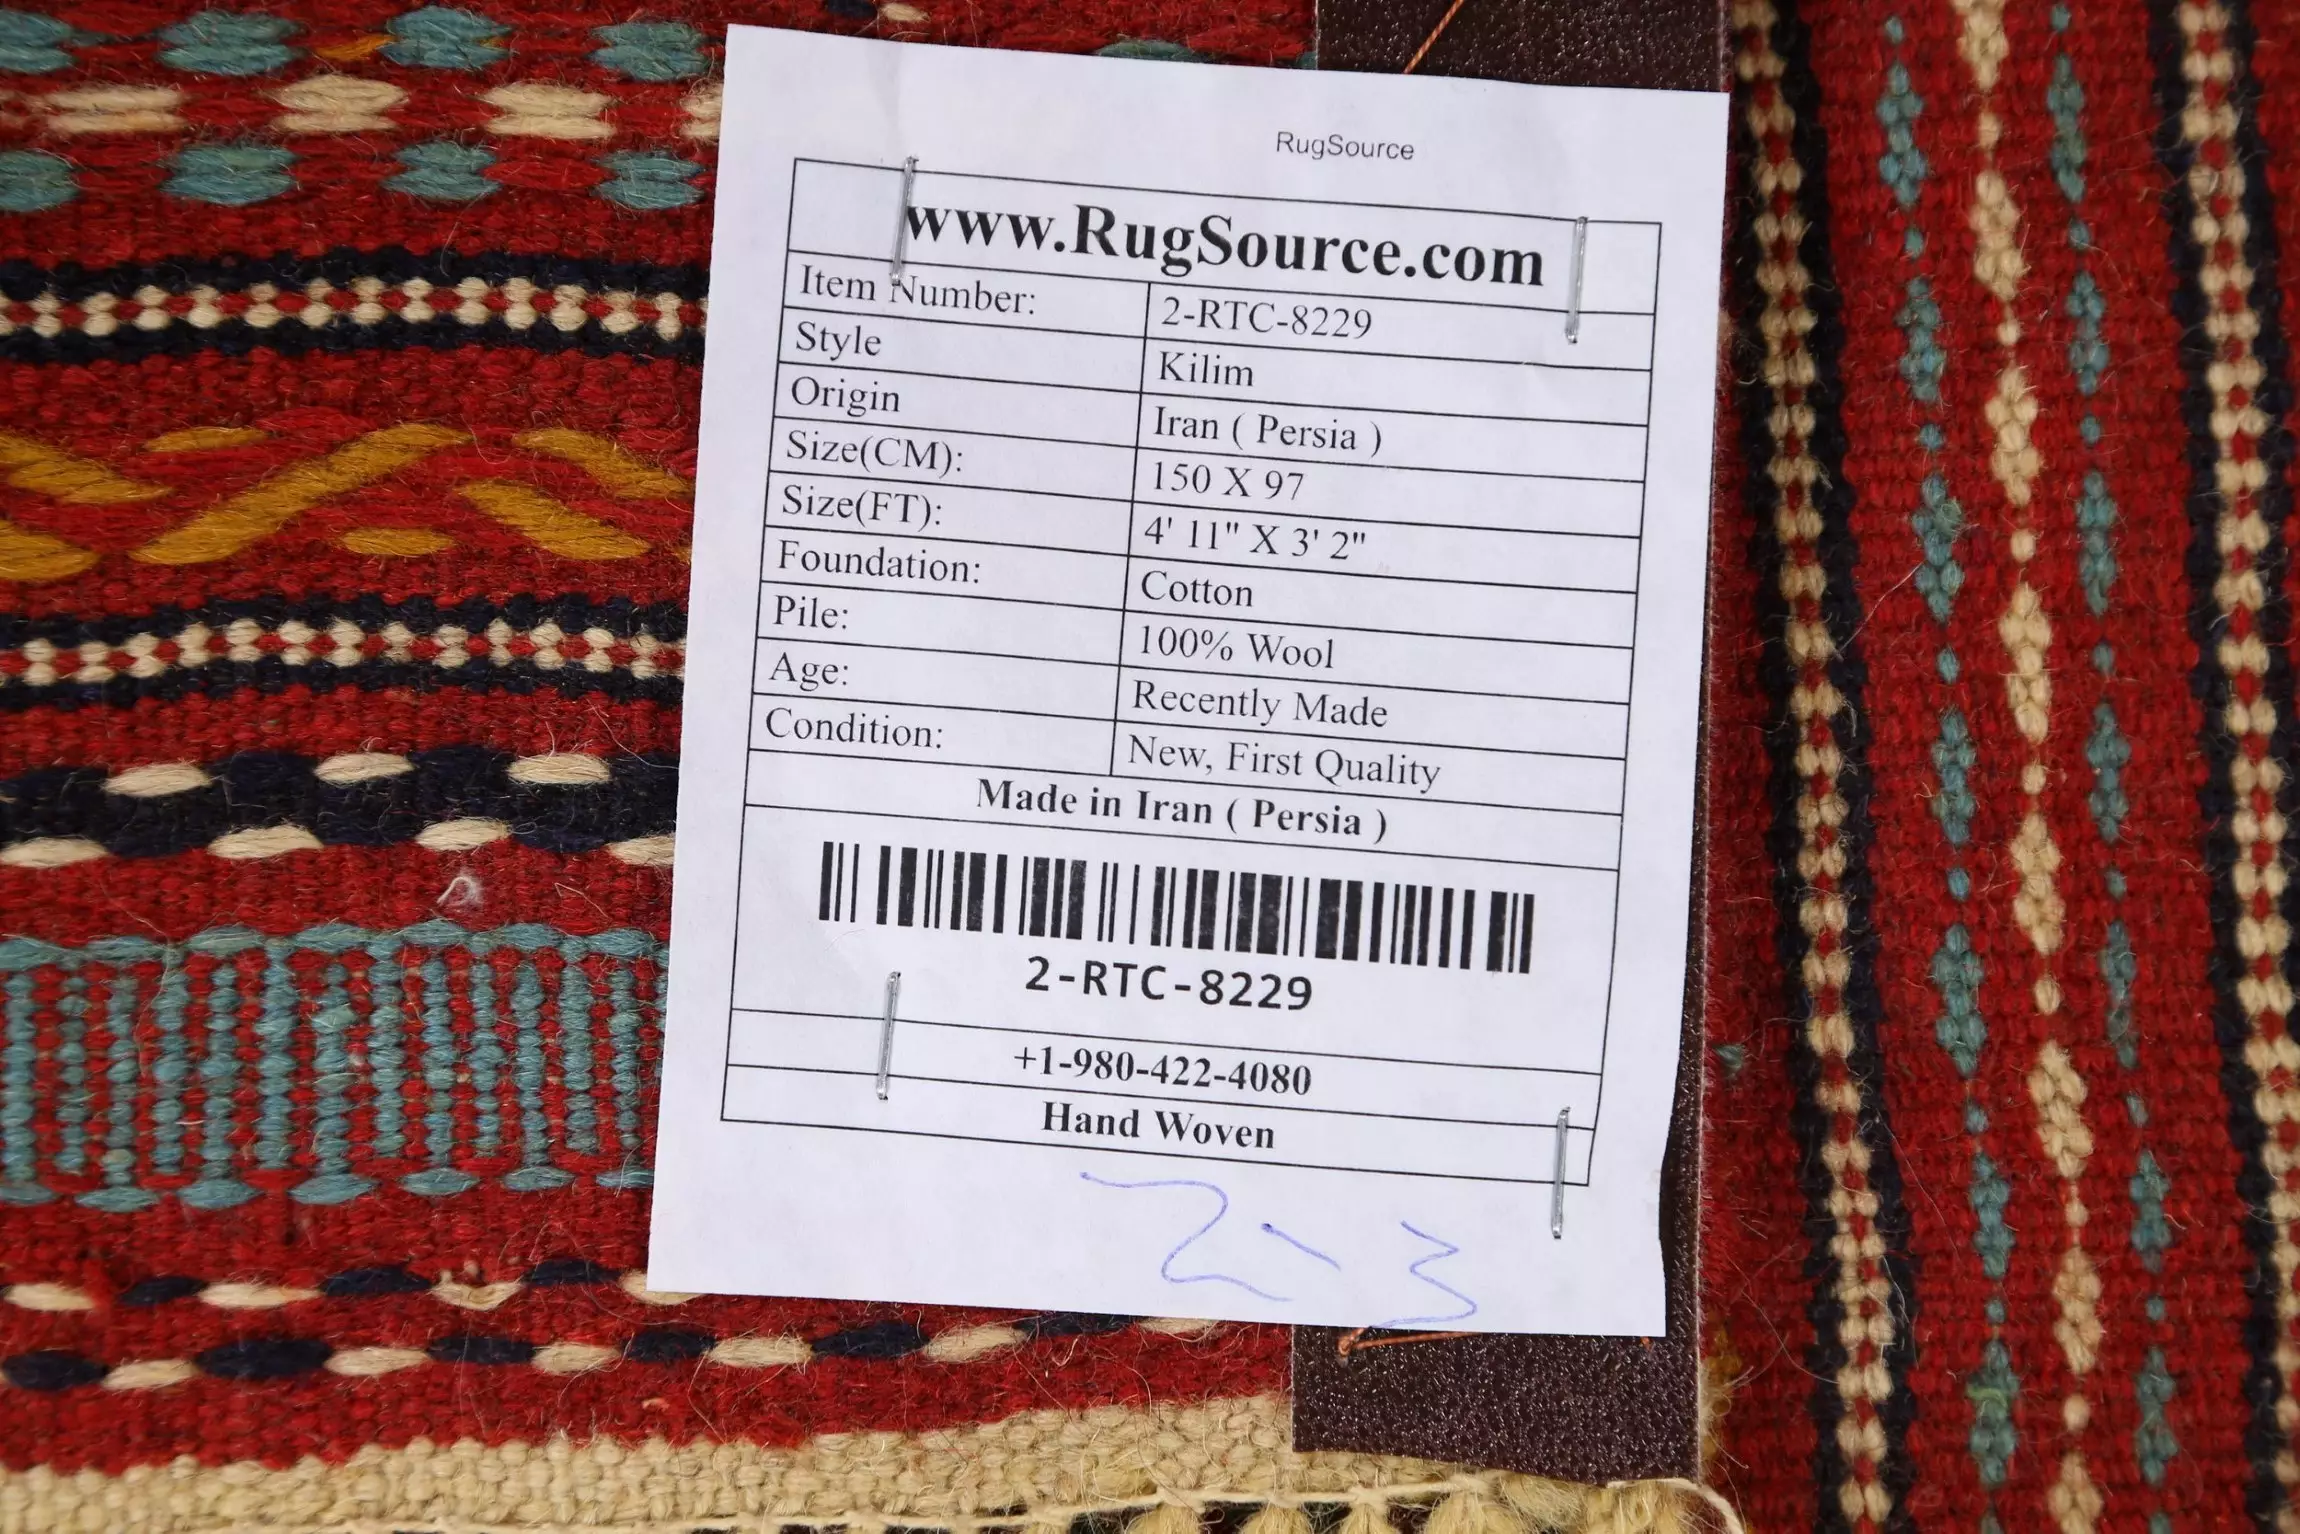 RugSource
www.RugSource.com
Item Number: 2-RTC-8229
Style Kilim
Origin Iran ( Persia )
Size(CM): 150 X 97
Size(FT): 4' 11" X 3' 2"
Foundation: Cotton
Pile: 100% Wool
Age: Recently Made
Condition: New, First Quality
Made in Iran ( Persia )
2-RTC-8229
+1-980-422-4080
Hand Woven
2-3